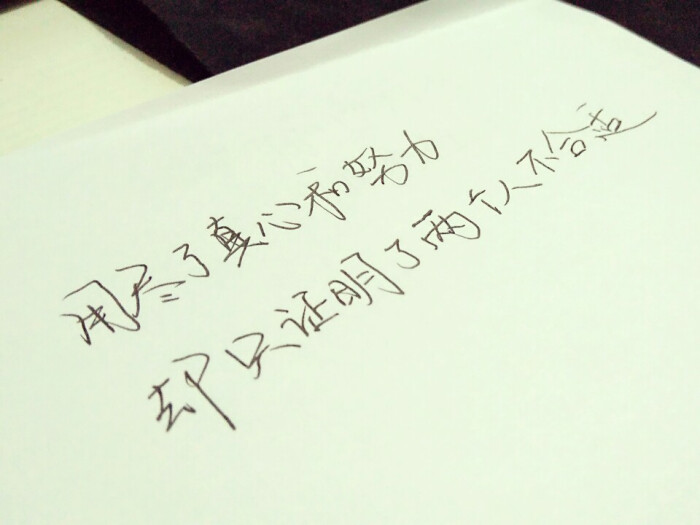 用尽了真心和努力
却只证明了两个人不合适